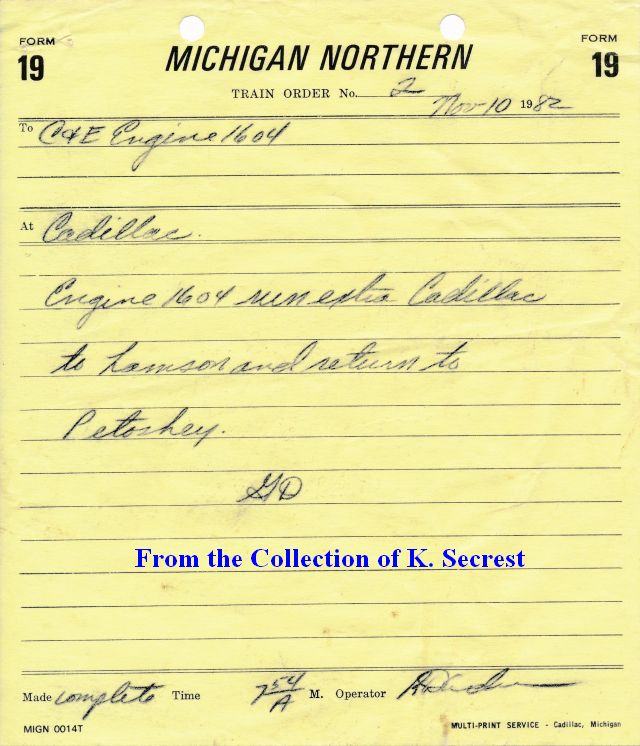 FORM 19
MICHIGAN NORTHERN
FORM 19
TRAIN ORDER No. 2
Nov 10 1982
To C&E Engine 1604
At Cadillac.
Engine 1604 run extra Cadillac
to Lamson and return to
Petoskey.
GD
From the Collection of K. Secrest
Made complete Time 7 54 A M. Operator
MIGN 0014T
MULTI-PRINT SERVICE - Cadillac, Michigan